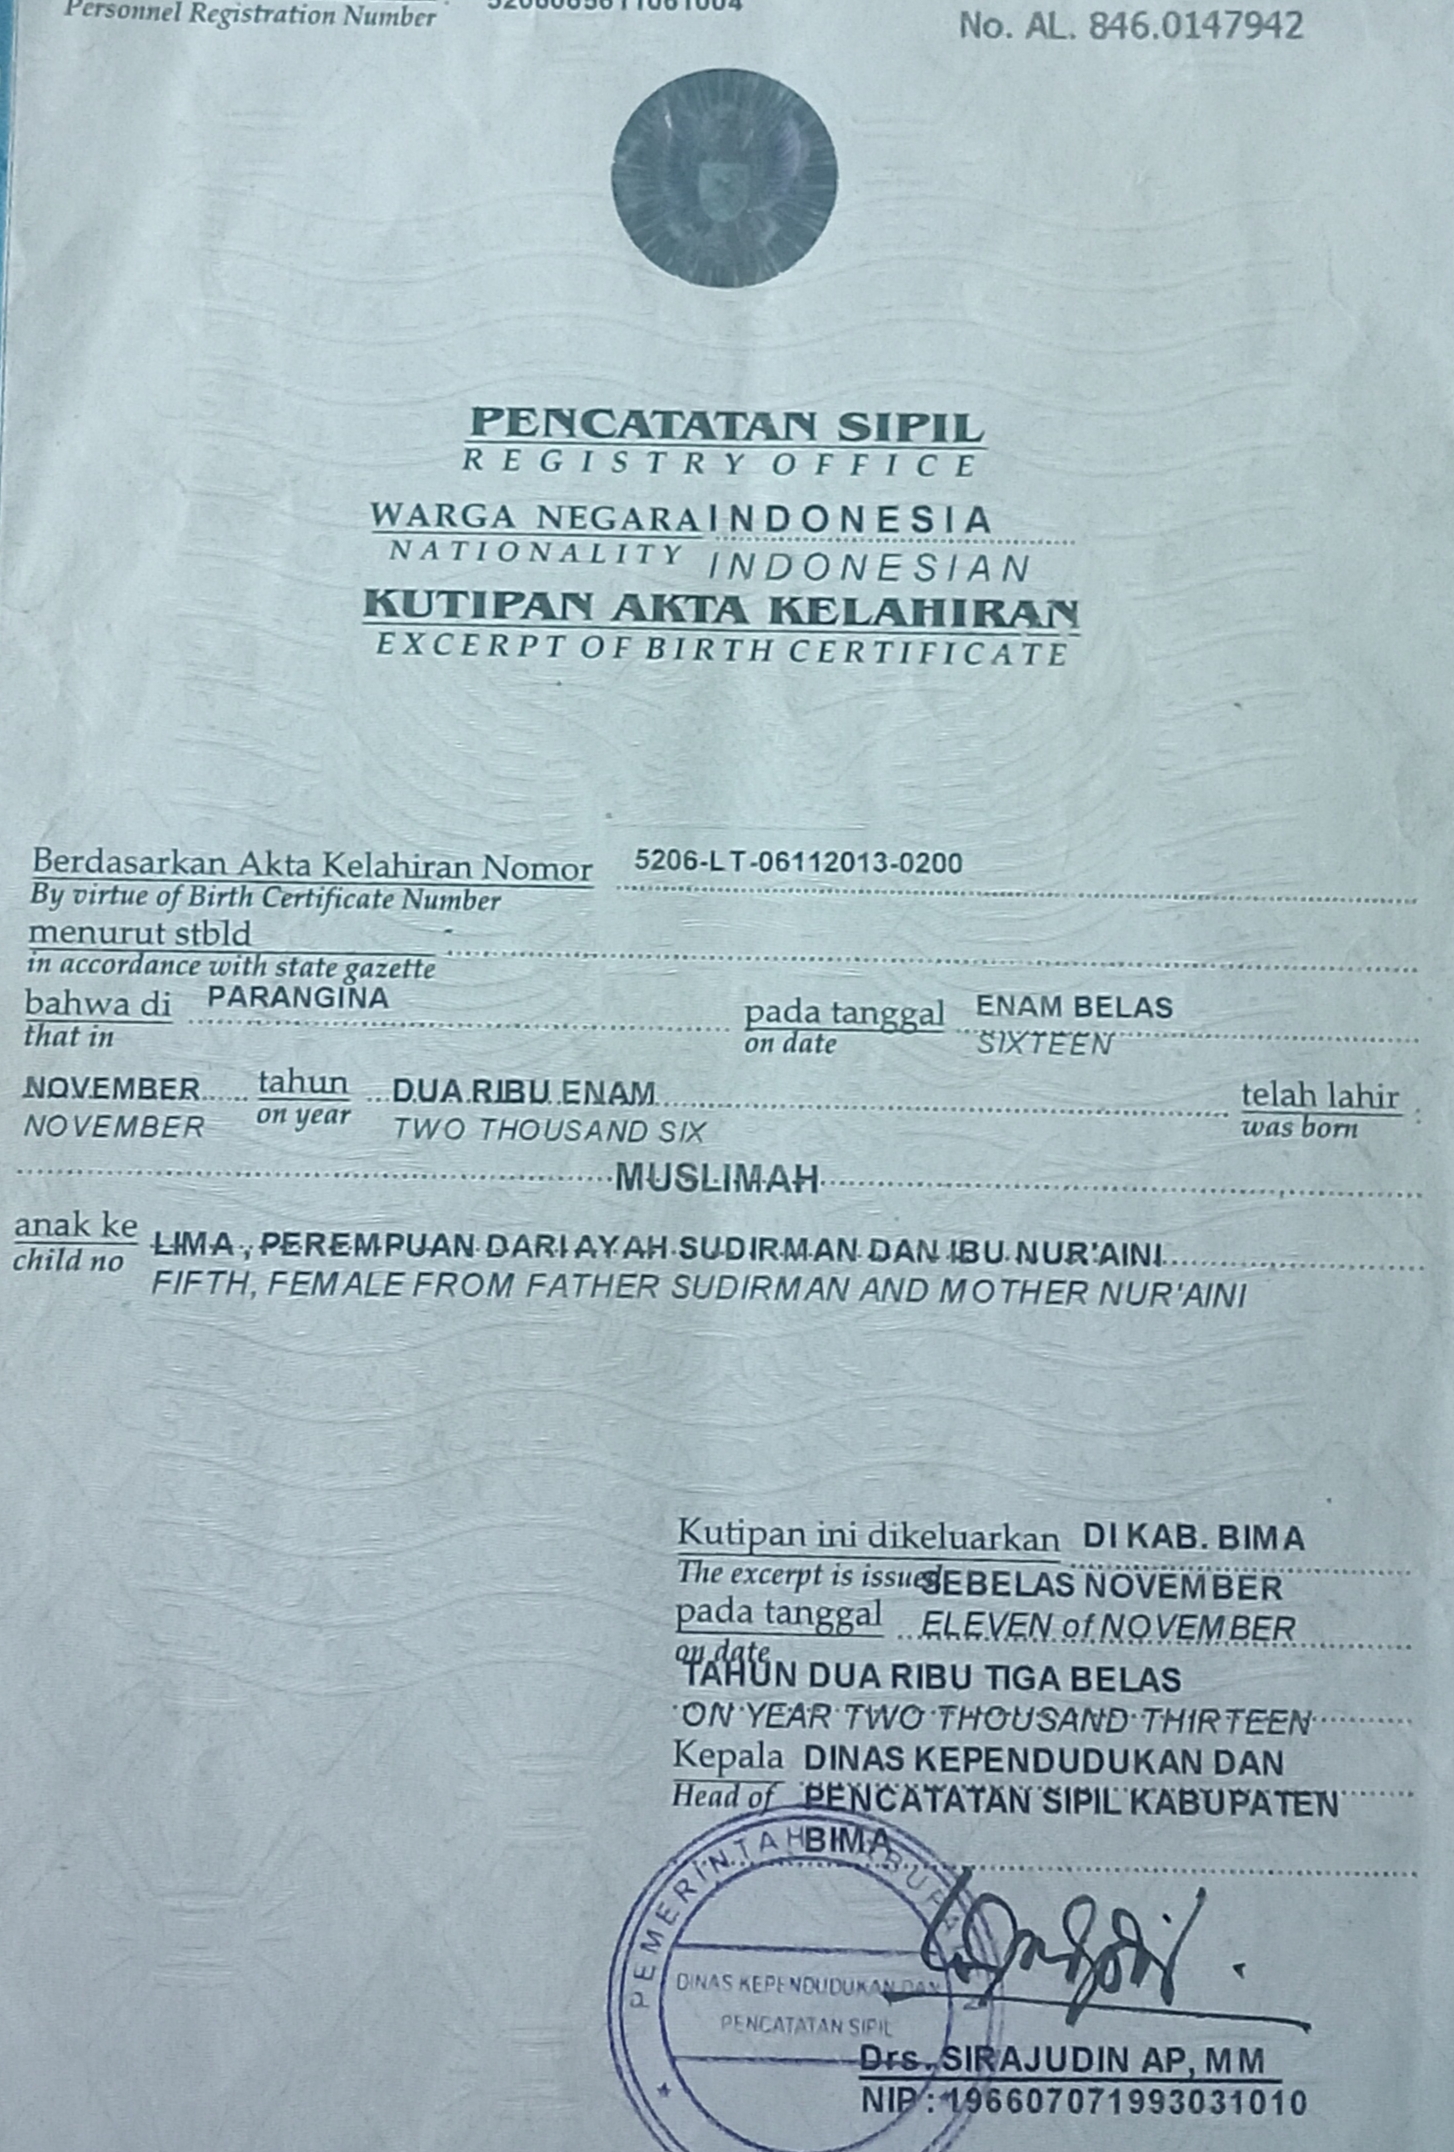 Personnel Registration Number
No. AL. 846.0147942
PENCATATAN SIPIL
REGISTRY OFFICE
WARGA NEGARA INDONESIA
NATIONALITY INDONESIAN
KUTIPAN AKTA KELAHIRAN
EXCERPT OF BIRTH CERTIFICATE
Berdasarkan Akta Kelahiran Nomor 5206-LT-06112013-0200
By virtue of Birth Certificate Number
menurut stbld -
in accordance with state gazette
bahwa di PARANGINA pada tanggal ENAM BELAS
that in on date SIXTEEN
NOVEMBER tahun DUA RIBU ENAM telah lahir
NOVEMBER on year TWO THOUSAND SIX was born
MUSLIMAH
anak ke LIMA, PEREMPUAN DARI AYAH SUDIRMAN DAN IBU NUR'AINI
child no FIFTH, FEMALE FROM FATHER SUDIRMAN AND MOTHER NUR'AINI
Kutipan ini dikeluarkan DI KAB. BIMA
The excerpt is issued SEBELAS NOVEMBER
pada tanggal ELEVEN of NOVEMBER
on date
TAHUN DUA RIBU TIGA BELAS
ON YEAR TWO THOUSAND THIRTEEN
Kepala DINAS KEPENDUDUKAN DAN
Head of PENCATATAN SIPIL KABUPATEN
BIMA
PEMERINTAH
DINAS KEPENDUDUKAN DAN
PENCATATAN SIPIL
Drs. SIRAJUDIN AP, MM
NIP : 196607071993031010